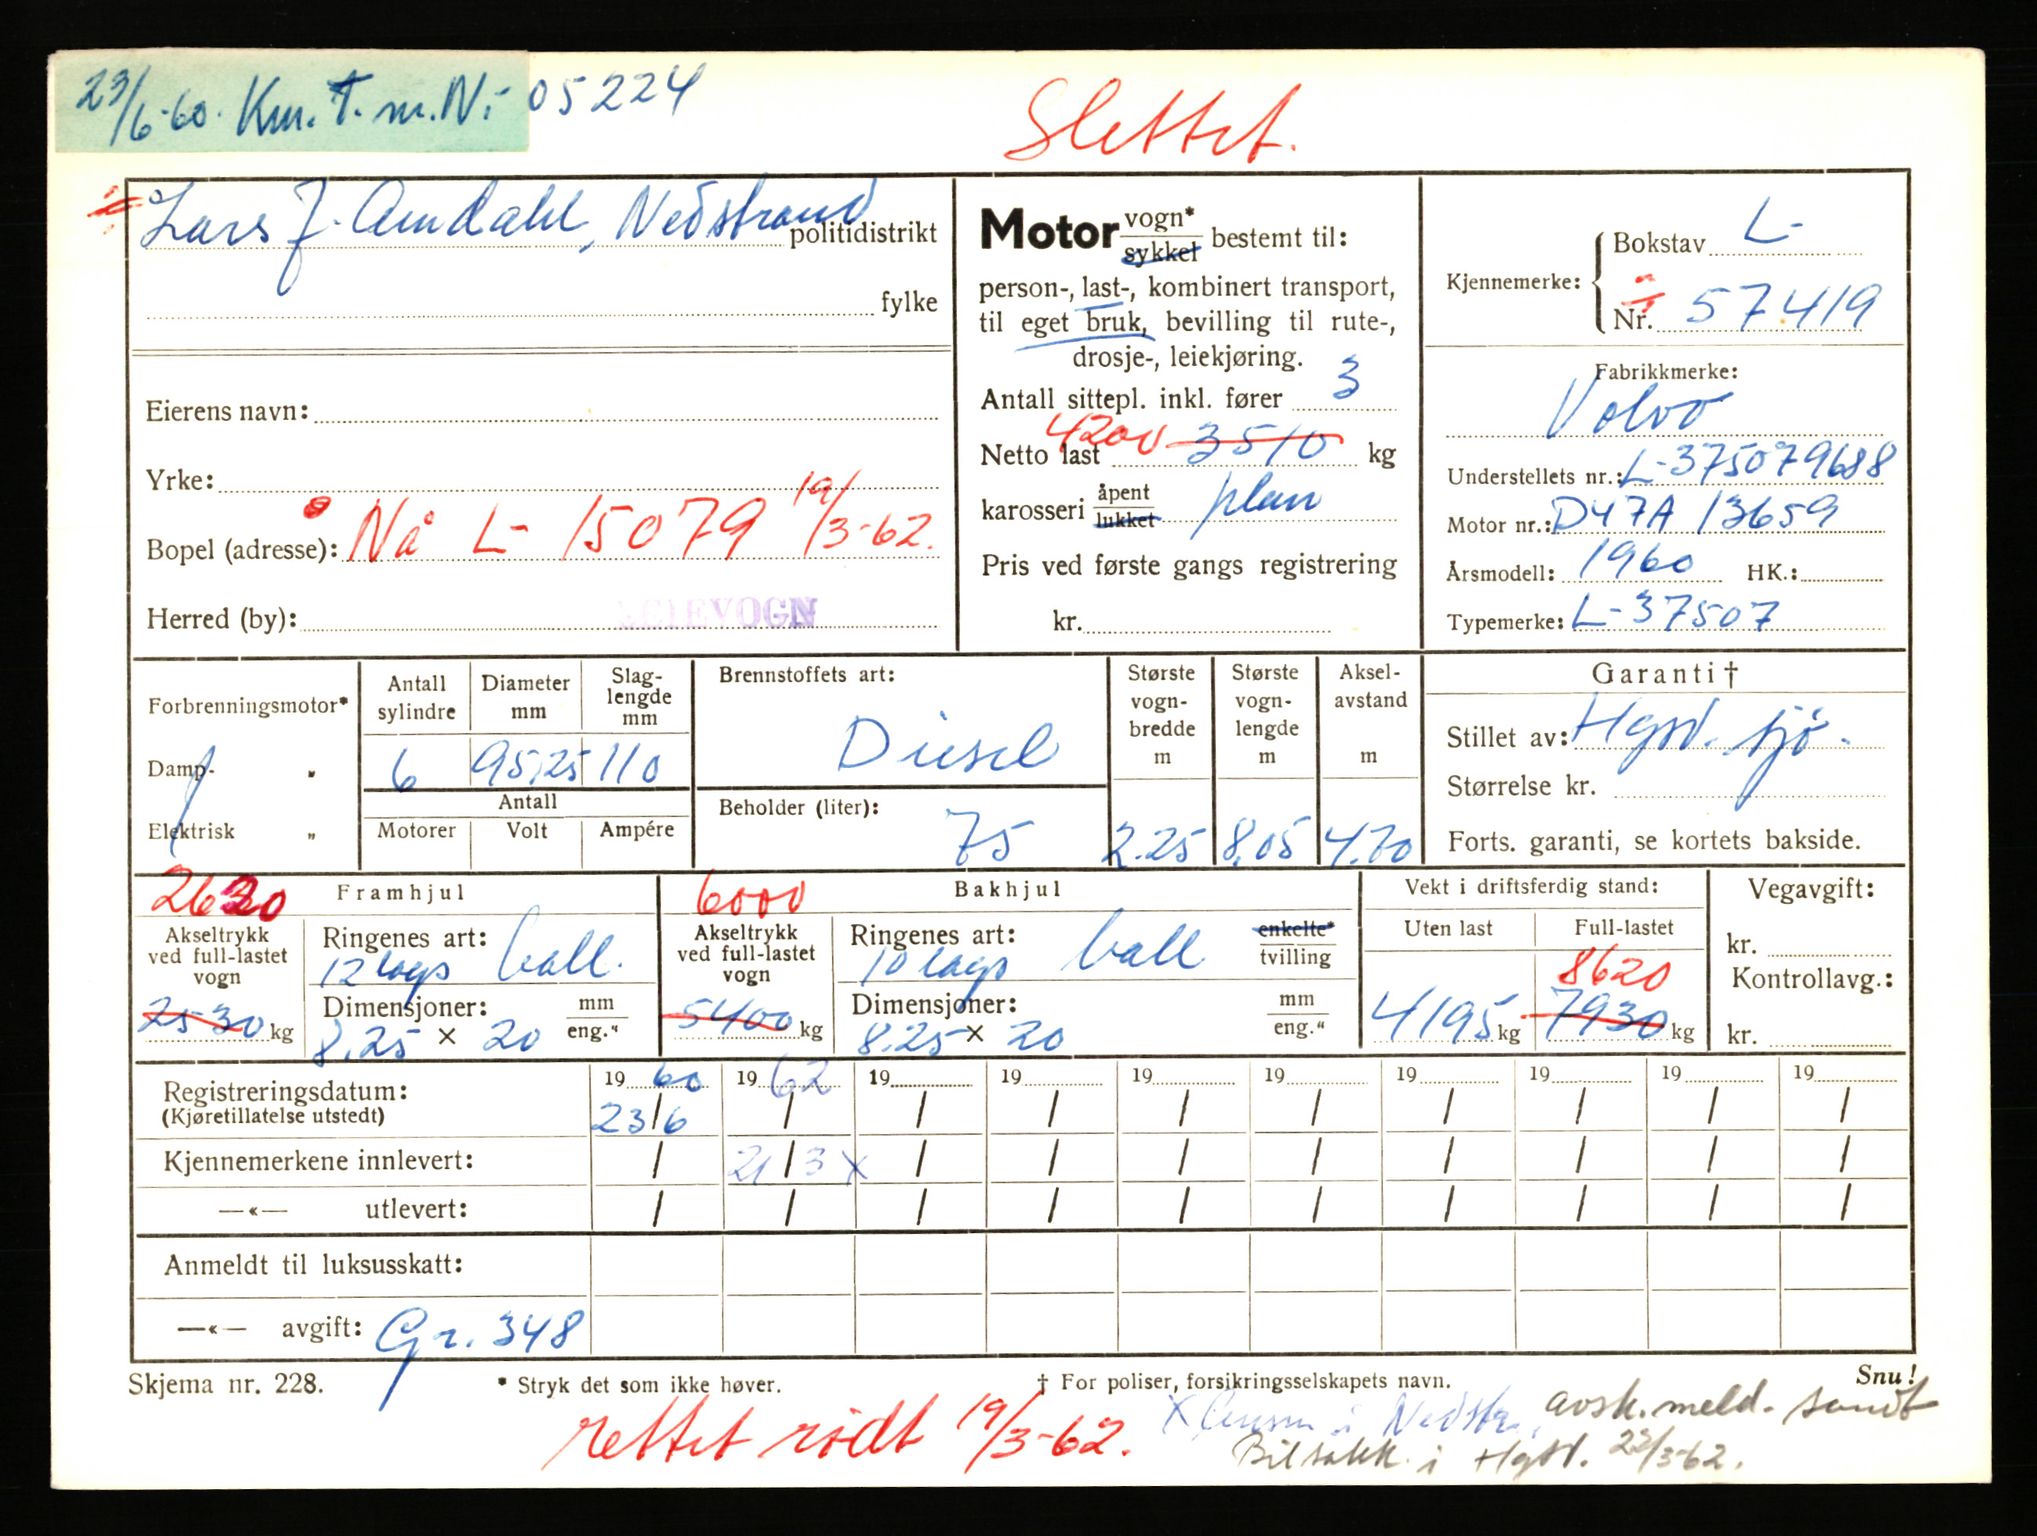 23/6-60. Km. T. m. Nr 05224
Slettet.
Lars J. Amdahl, Nedstrand politidistrikt
fylke
Eierens navn:
Yrke:
Bopel (adresse): Nå L- 15079 19/3-62.
Herred (by):
LEIEVOGN
Motor vogn* sykkel bestemt til:
person-, last-, kombinert transport,
til eget bruk, bevilling til rute-,
drosje-, leiekjøring.
Antall sittepl. inkl. fører 3
Netto last 4200 3510 kg
karosseri åpent lukket plan
Pris ved første gangs registrering
kr.
Kjennemerke: Bokstav L-
Nr. 57419
Fabrikkmerke:
Volvo
Understellets nr.: L-375079688
Motor nr.: D47A 13659
Årsmodell: 1960 HK.:
Typemerke: L-37507
Forbrenningsmotor*
Damp- „
Elektrisk „
Antall sylindre 6
Diameter mm 95,25
Slag-lengde mm 110
Antall
Motorer Volt Ampére
Brennstoffets art:
Diesel
Beholder (liter): 75
Største vogn-bredde m 2.25
Største vogn-lengde m 8.05
Aksel-avstand m 4.70
Garanti †
Stillet av: Hgsd. sjø.
Størrelse kr.
Forts. garanti, se kortets bakside.
2620 Framhjul
Akseltrykk ved full-lastet vogn
2530 kg
Ringenes art: 12 lags ball.
Dimensjoner: mm eng."
8.25 × 20
6000 Bakhjul
Akseltrykk ved full-lastet vogn
5400 kg
Ringenes art: 10 lags ball enkelte* tvilling
Dimensjoner: mm eng."
8.25 × 20
Vekt i driftsferdig stand:
Uten last Full-lastet
8620
4195 kg 7930 kg
Vegavgift:
kr.
Kontrollavg.:
kr.
Registreringsdatum: 19 60 19 62 19 19 19 19 19 19 19 19
(Kjøretillatelse utstedt) 23/6 / / / / / / / / /
Kjennemerkene innlevert: / 21/3 x / / / / / / / /
—«— utlevert: / / / / / / / / / /
Anmeldt til luksusskatt:
—«— avgift: Gr. 348
Skjema nr. 228. * Stryk det som ikke høver. † For poliser, forsikringsselskapets navn. Snu!
rettet rødt 19/3-62. x i Nedstr. avsk. meld. sendt
Bilsakk. i Hgsd. 23/3-62.